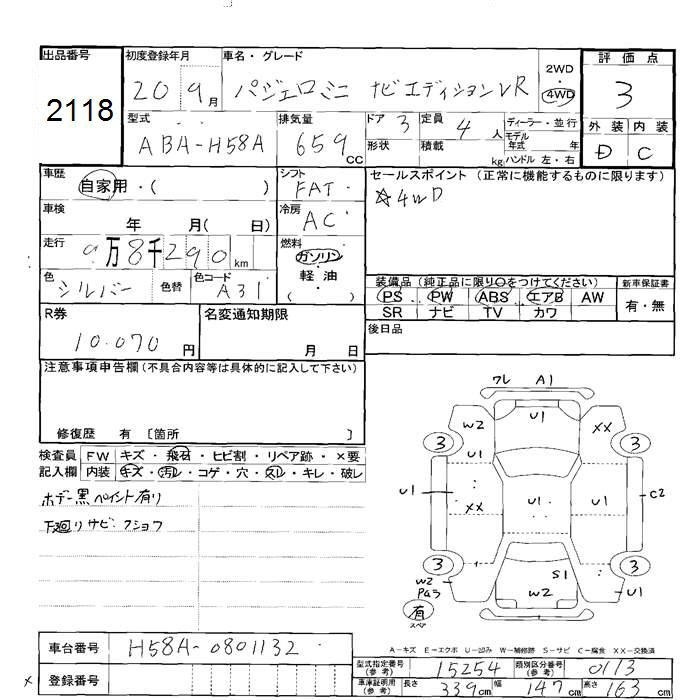 出品番号 初度登録年月 車名・グレード 2WD 評価点
2118 20 9月 パジェロミニ ナビエディションVR 4WD 3
型式 排気量 ドア 3 定員 4 人 ディーラー・並行 外装 内装
ABA-H58A 659 CC 形状 積載 kg モデル年式 年 D C
ハンドル 左・右
車歴 自家用・( ) シフト FAT セールスポイント (正常に機能するものに限ります)
☆4WD
車検 年 月( 日) 冷房 AC
走行 9万8千290km 燃料 ガソリン
軽油
( )
色 シルバー 色替 色コード A31 装備品 (純正品に限り○をつけてください) 新車保証書
PS PW ABS エアB AW 有・無
SR ナビ TV カワ
R券 10.070 円 名変通知期限 月 日 後日品
注意事項申告欄 (不具合内容等は具体的に記入して下さい)
修復歴 有 〔箇所 〕
検査員 FW キズ・飛石・ヒビ割・リペア跡・×要
記入欄 内装 キズ・汚レ・コゲ・穴・スレ・キレ・破レ
ボデー黒ペイント有り
下廻りサビ・フショク
ワレ A1
W2 U1 XX
3 U1 3
U1 XX U1 U1 C2
3 S1 3
W2 W2 U1
有
スペア
A-キズ E-エクボ U-凹み W-補修跡 S-サビ C-腐食 XX-交換済
車台番号 H58A-0801132
登録番号
型式指定番号 (参考) 15254 類別区分番号 (参考) 0113
車庫証明用 (参考) 長さ 339cm 幅 147cm 高さ 163cm